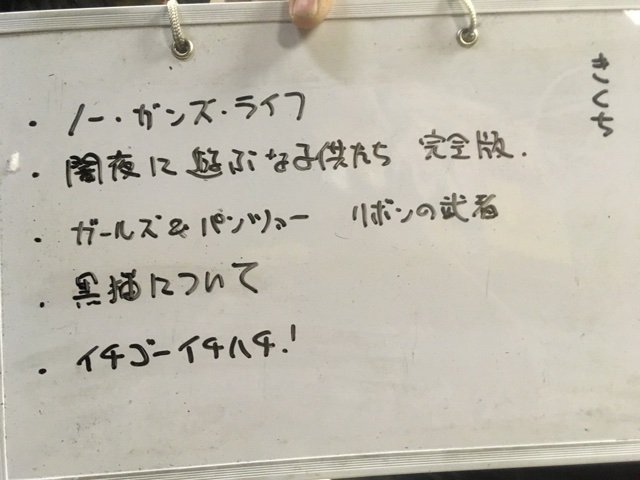 きくち
・ノー・ガンズ・ライフ
・闇夜に遊ぶな子供たち 完全版.
・ガールズ&パンツァー リボンの武者
・黒猫について
・イチゴーイチハチ!